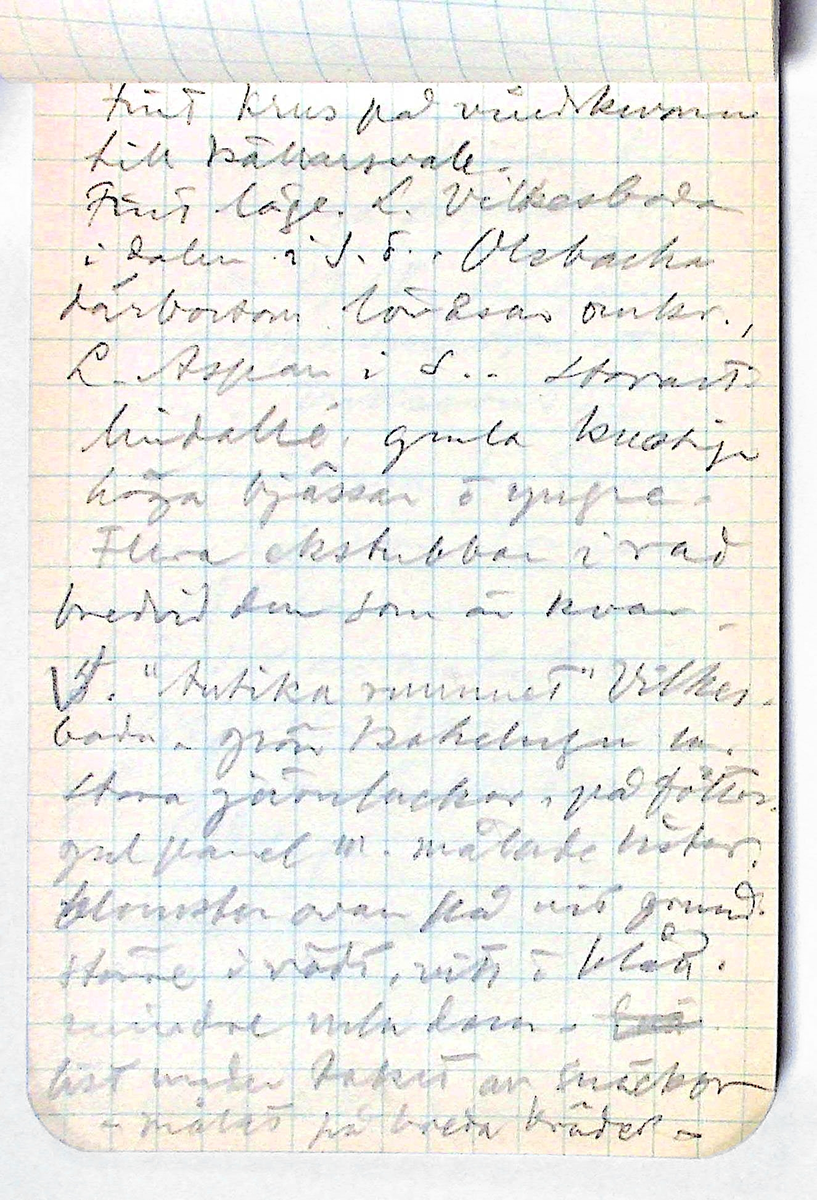 Fint krus på vindskvarn
till Källarsvale.
Fint läge. L. Vilkesboda
i dalen i S.Ö.. Olsbacka
därbortom lövåsar omkr.,
L. Aspan i S.. Storart.
lindallé, gamla knotiga
höga bjässar o yngre.
Flera ekstubbar i rad
bredvid den som är kvar.
"Antika rummet" Vilkes-
boda. grön kakelugn m.
stora järnluckor, på fötter.
gul panel m. målade lister.
blomster ovan på vit grund.
större i rött, vitt o blått.
mindre mellan dem.
list under taket av snäckor
- målat på breda bräder -